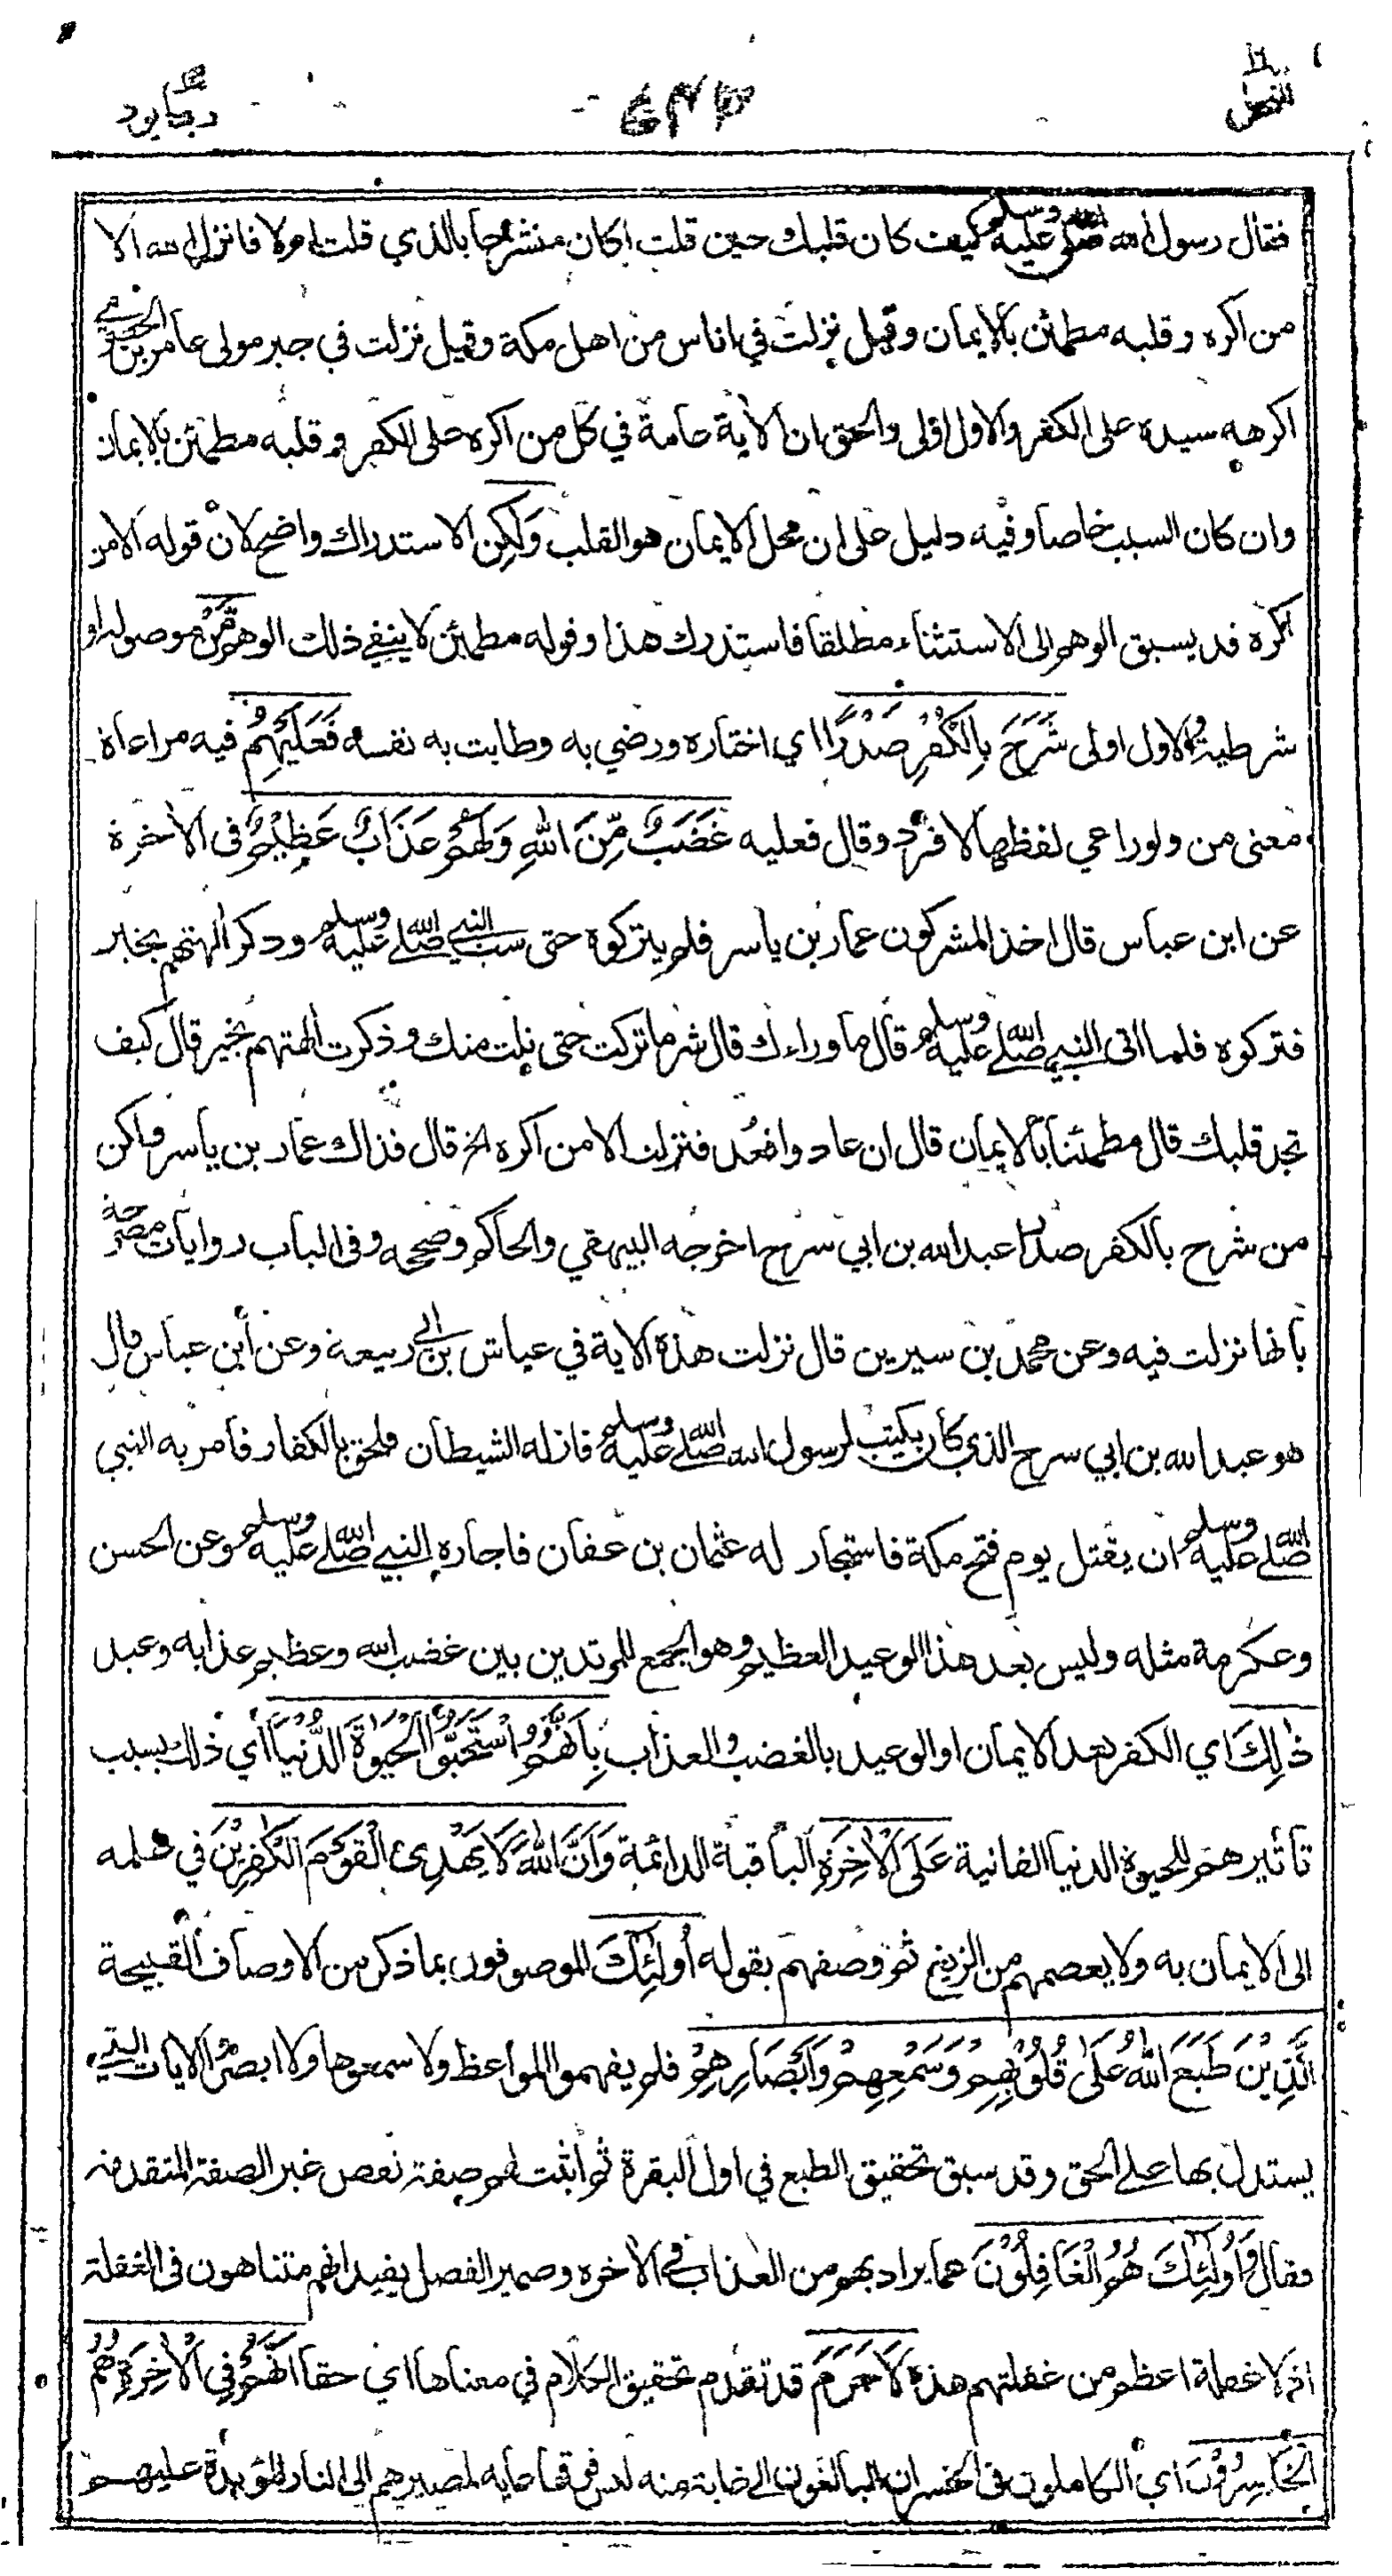 النحل ١٦
٦٤٣
ربما ١٤
فقال رسول الله صلى الله عليه وسلم كيف كان قلبك حين قلت اكان منشرحا بالذي قلت ام لا فانزل الله الا
من اكره وقلبه مطمئن بالايمان وقيل نزلت في اناس من اهل مكة وقيل نزلت في جبر مولى عامر بن الحضرمي
اكرهه سيده على الكفر والاول اولى والحق ان الاية عامة في كل من اكره على الكفر وقلبه مطمئن بالايمان
وان كان السبب خاصا وفيه دليل على ان محل الايمان هو القلب وَلٰكِنْ الاستدراك واضح لان قوله الا من
اكره قد يسبق الوهم الى الاستثناء مطلقا فاستدرك هذا وقوله مطمئن لا ينفي ذلك الوهم مَّنْ موصولة او
شرطية والاول اولى شَرَحَ بِالْكُفْرِ صَدْرًا اي اختاره ورضي به وطابت به نفسه فَعَلَيْهِمْ فيه مراعاة
معنى من ولو راعى لفظها لافرد وقال فعليه غَضَبٌ مِّنَ اللّٰهِ وَلَهُمْ عَذَابٌ عَظِيْمٌ في الاخرة
عن ابن عباس قال اخذ المشركون عمار بن ياسر فلم يتركوه حتى سب النبي صلى الله عليه وسلم وذكر الهتهم بخير
فتركوه فلما اتى النبي صلى الله عليه وسلم قال ما وراءك قال شر ما تركت حتى نلت منك وذكرت الهتهم بخير قال كيف
تجد قلبك قال مطمئنا بالايمان قال ان عادوا فعُد فنزلت الا من اكره الخ قال فذاك عمار بن ياسر ولكن
من شرح بالكفر صدرا عبد الله بن ابي سرح اخرجه البيهقي والحاكم وصححه وفي الباب روايات مصرحة
بانها نزلت فيه وعن محمد بن سيرين قال نزلت هذه الاية في عياش بن ابي ربيعة وعن ابن عباس قال
هو عبد الله بن ابي سرح الذي كان يكتب لرسول الله صلى الله عليه وسلم فازله الشيطان فلحق بالكفار فامر به النبي
صلى الله عليه وسلم ان يقتل يوم فتح مكة فاستجار له عثمان بن عفان فاجاره النبي صلى الله عليه وسلم وعن الحسن
وعكرمة مثله وليس بعد هذا الوعيد العظيم وهو الجمع للمرتدين بين غضب الله وعظيم عذابه وعيد
ذٰلِكَ اي الكفر بعد الايمان او الوعيد بالغضب والعذاب بِاَنَّهُمُ اسْتَحَبُّوا الْحَيٰوةَ الدُّنْيَا اي ذلك بسبب
تاثيرهم للحيوة الدنيا الفانية عَلَى الْاٰخِرَةِ الباقية الدائمة وَاَنَّ اللّٰهَ لَا يَهْدِى الْقَوْمَ الْكٰفِرِيْنَ في علمه
الى الايمان به ولا يعصمهم من الزيغ ثم وصفهم بقوله اُولٰٓئِكَ الموصوفون بما ذكر من الاوصاف القبيحة
الَّذِيْنَ طَبَعَ اللّٰهُ عَلٰى قُلُوْبِهِمْ وَسَمْعِهِمْ وَاَبْصَارِهِمْ فلم يفهموا المواعظ ولا سمعوها ولا ابصروا الايات التي
يستدل بها على الحق وقد سبق تحقيق الطبع في اول البقرة ثم اثبت لهم صفة نقص غير الصفة المتقدمة
فقال وَاُولٰٓئِكَ هُمُ الْغَافِلُوْنَ عما يراد بهم من العذاب في الاخرة وضمير الفصل يفيد انهم متناهون في الغفلة
اذ لا غفلة اعظم من غفلتهم هذه لَا جَرَمَ قد تقدم تحقيق الكلام في معناها اي حقا اَنَّهُمْ فِي الْاٰخِرَةِ هُمُ
الْخٰسِرُوْنَ اي الكاملون في الخسران البالغون الى غاية منه ليس فوقها غاية لمصيرهم الى النار المؤبدة عليهم